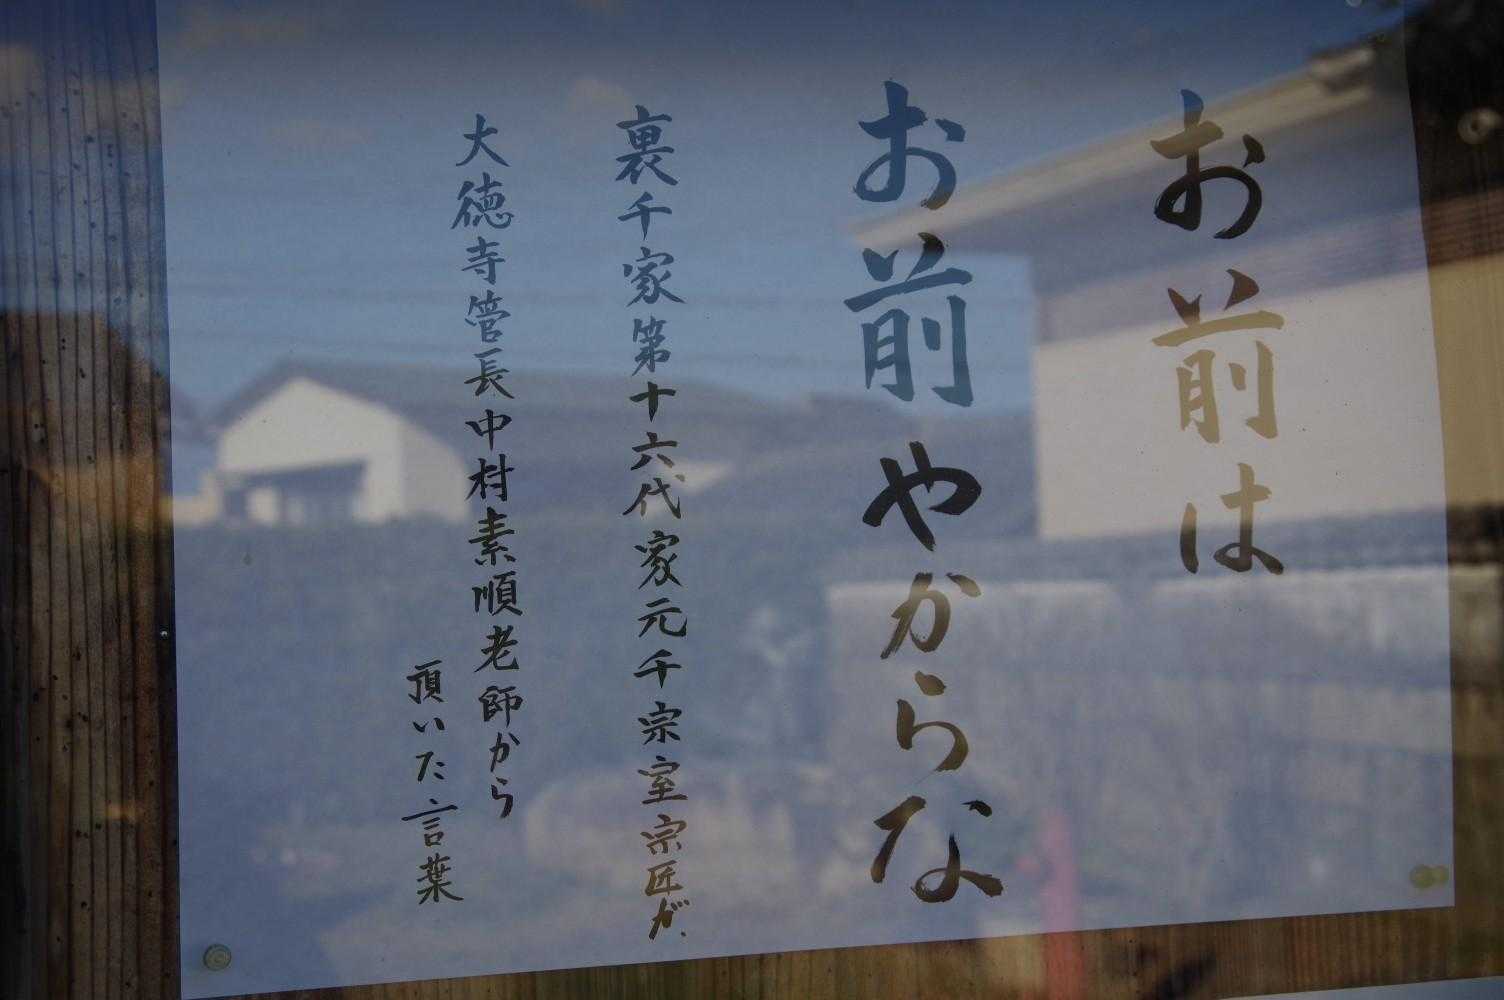 お前は
お前やからな
裏千家第十六代家元千宗室宗匠が、
大徳寺管長中村素順老師から
頂いた言葉